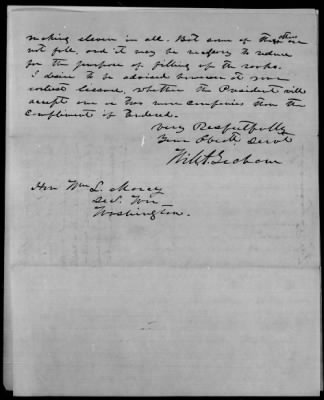 making eleven in all. But some of these are
not full, and it may be necessary to reduce
for the purpose of filling up the ranks.
I desire to be advised however at your
earliest leisure, whether the President will
accept one or two more companies than the
Compliment if tendered.
Very Respectfully
Your Obedt Servt
Will A. Graham
Hon Wm L. Marcy
Sec. War
Washington.